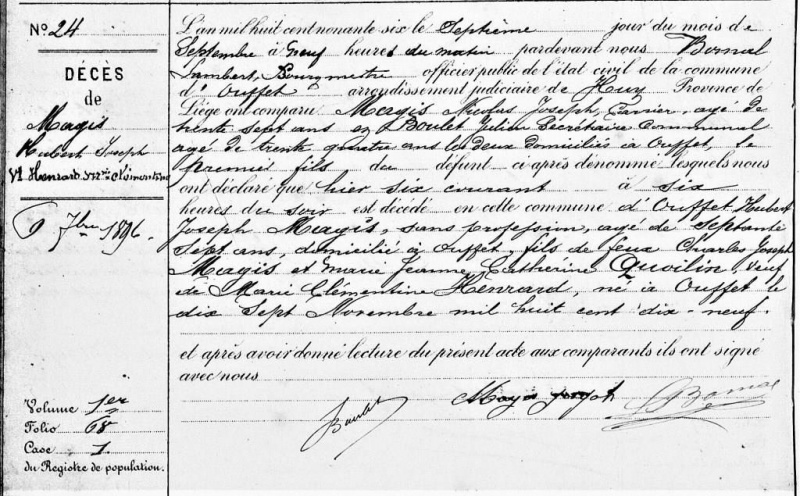 No 24
DÉCÈS
de
Magis
Hubert Joseph
Vf Henrard Marie Clémentine
9 7bre 1896.
Volume 1er
Folio 68
Case 1
du Registre de population.
L'an mil huit cent nonante six le Septième jour du mois de
Septembre à neuf heures du matin pardevant nous Bornal
Lambert, Bourgmestre officier public de l'état civil de la commune
d'Ouffet arrondissement judiciaire de Huy Province de
Liége ont comparu Magis Nicolas Joseph, Carrier, agé de
trente sept ans et Boulet Julien Secrétaire Communal
agé de trente quatre ans les deux domiciliés à Ouffet, le
premier fils du défunt ci après dénommé lesquels nous
ont déclaré que hier six courant à six
heures du soir est décédé en cette commune d'Ouffet Hubert
Joseph Magis, sans profession, agé de Septante
Sept ans, domicilié à Ouffet, fils de feux Charles Joseph
Magis et Marie Jeanne Catherine Quoilin, veuf
de Marie Clémentine Henrard, né à Ouffet le
dix Sept Novembre mil huit cent dix-neuf.
et après avoir donné lecture du présent acte aux comparants ils ont signé
avec nous
Magis Joseph
Bornal